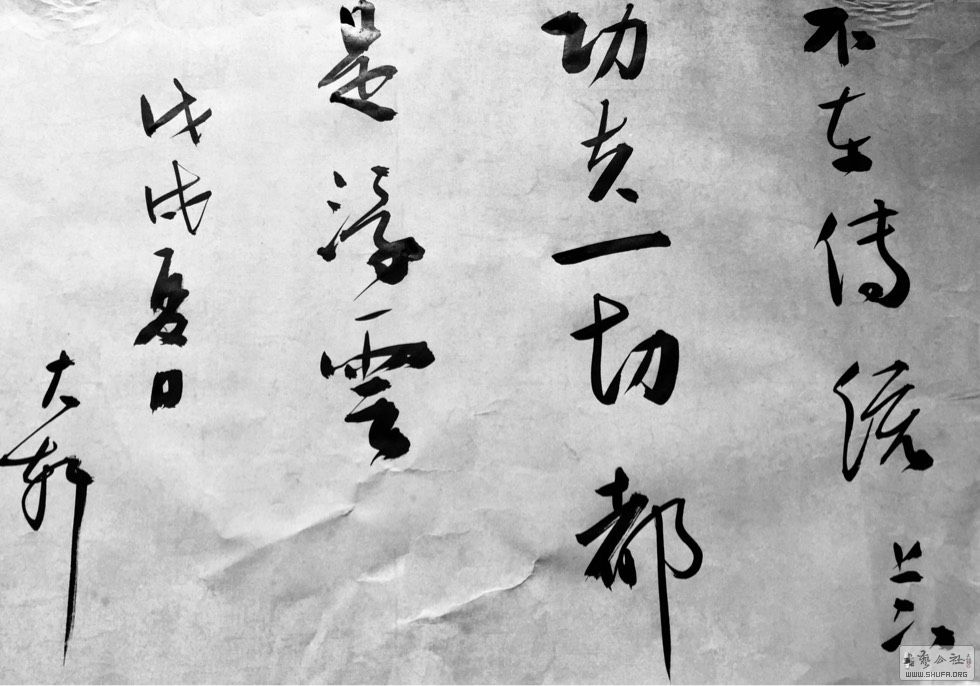 不在传统上下
功夫一切都
是浮雲
戊戌夏日
大軒
書艺公社
WWW.SHUFA.ORG